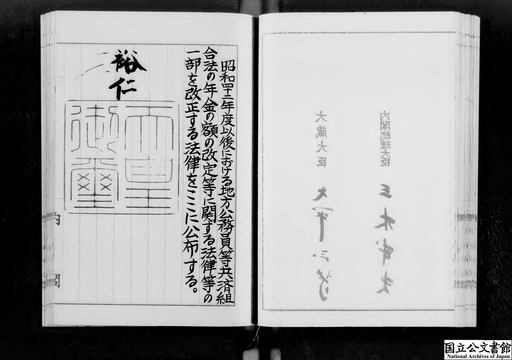 昭和四十二年度以後における地方公務員等共済組
合法の年金の額の改定等に関する法律等の
一部を改正する法律をここに公布する。
裕仁
天皇御璽
内閣
内閣総理大臣
三木武夫
大蔵大臣
大平正芳
国立公文書館
National Archives of Japan